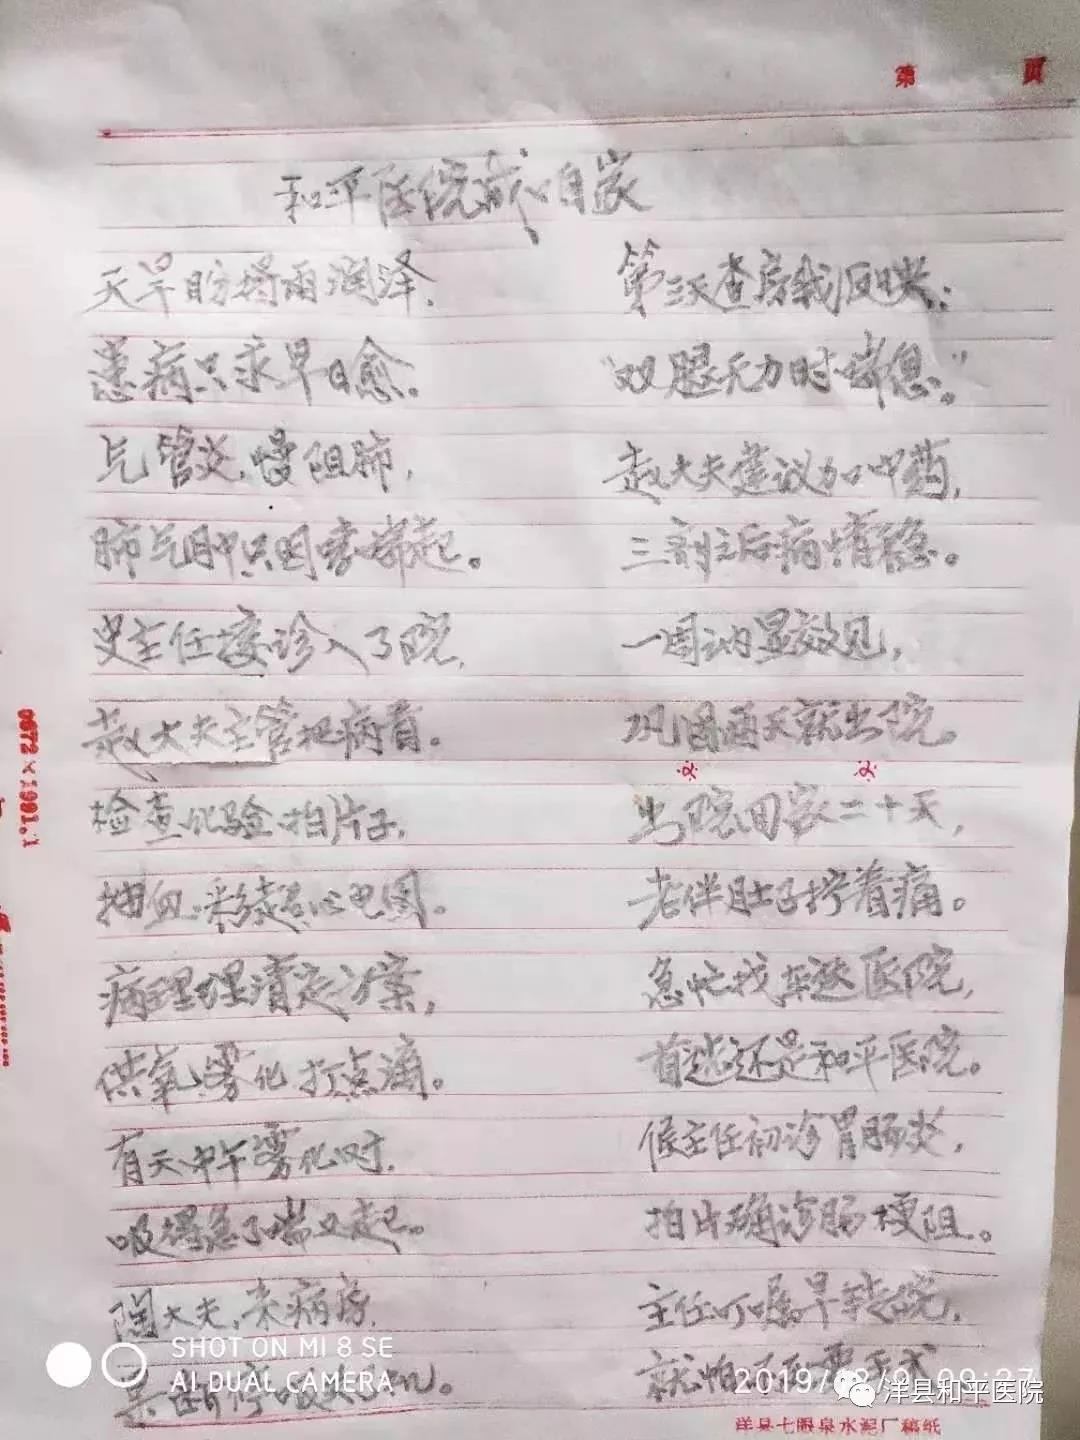 第 页
和平医院就如自家
天旱盼得雨润泽，
患病只求早日愈。
气管炎，慢阻肺，
肺气肿只因喘起。
史主任接诊入了院，
赵大夫主管把病看。
检查化验拍片子，
抽血彩超心电图。
病理理清定方案，
供氧雾化打点滴。
有天中午雾化时，
吸得急了喘又起。
陶大夫，来病房，
第三天查房我反映：
"双腿无力时喘息。"
赵大夫建议加中药，
三剂之后病情稳。
一周内显效见，
巩固两天就出院。
出院回家二十天，
老伴肚子拧着痛。
急忙找车送医院，
首选还是和平医院。
候主任初诊胃肠炎，
拍片确诊肠梗阻。
主任叮嘱早转院，
就怕
0672×1991.1
SHOT ON MI 8 SE
AI DUAL CAMERA
洋县和平医院
洋县七眼泉水泥厂稿纸